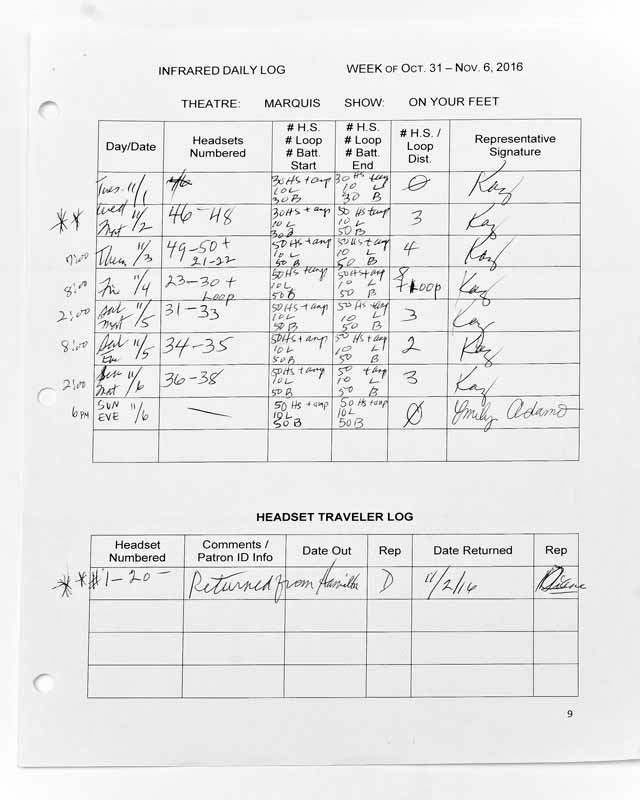 INFRARED DAILY LOG WEEK OF OCT. 31 – NOV. 6, 2016
THEATRE: MARQUIS SHOW: ON YOUR FEET
Day/Date Headsets Numbered # H.S. # Loop # Batt. Start # H.S. # Loop # Batt. End # H.S. / Loop Dist. Representative Signature
Tues 11/1 30 Hs + amp 10 L 30 B 30 Hs + amp 10 L 30 B Ø Kaz
** Wed Mat 11/2 46-48 30Hs + amp 10 L 30 B 50 Hs + amp 10 L 50 B 3 Kaz
7:00 Thurs 11/3 49-50 + 21-22 50Hs + amp 10 L 50 B 50 Hs + amp 10 L 50 B 4 Kaz
8:00 Fri 11/4 23-30 + Loop 50Hs + amp 10L 50 B 50Hs + amp 10 L 50 B 8 + Loop Kaz
2:00 Sat Mat 11/5 31-33 50Hs + amp 10L 50 B 50Hs + amp 10 L 50 B 3 Kaz
8:00 Sat Eve 11/5 34-35 50Hs + amp 10L 50B 50Hs + amp 10 L 50 B 2 Kaz
2:00 Sun Mat 11/6 36-38 50Hs + amp 10L 50 B 50 + amp 10 L 50 B 3 Kaz
6 PM SUN EVE 11/6 — 50 Hs + amp 10L 50 B 50 Hs + amp 10L 50 B Ø Emily Adams
HEADSET TRAVELER LOG
Headset Numbered Comments / Patron ID Info Date Out Rep Date Returned Rep
** #1-20- Returned from Hamilton D 11/2/16 Diane
9